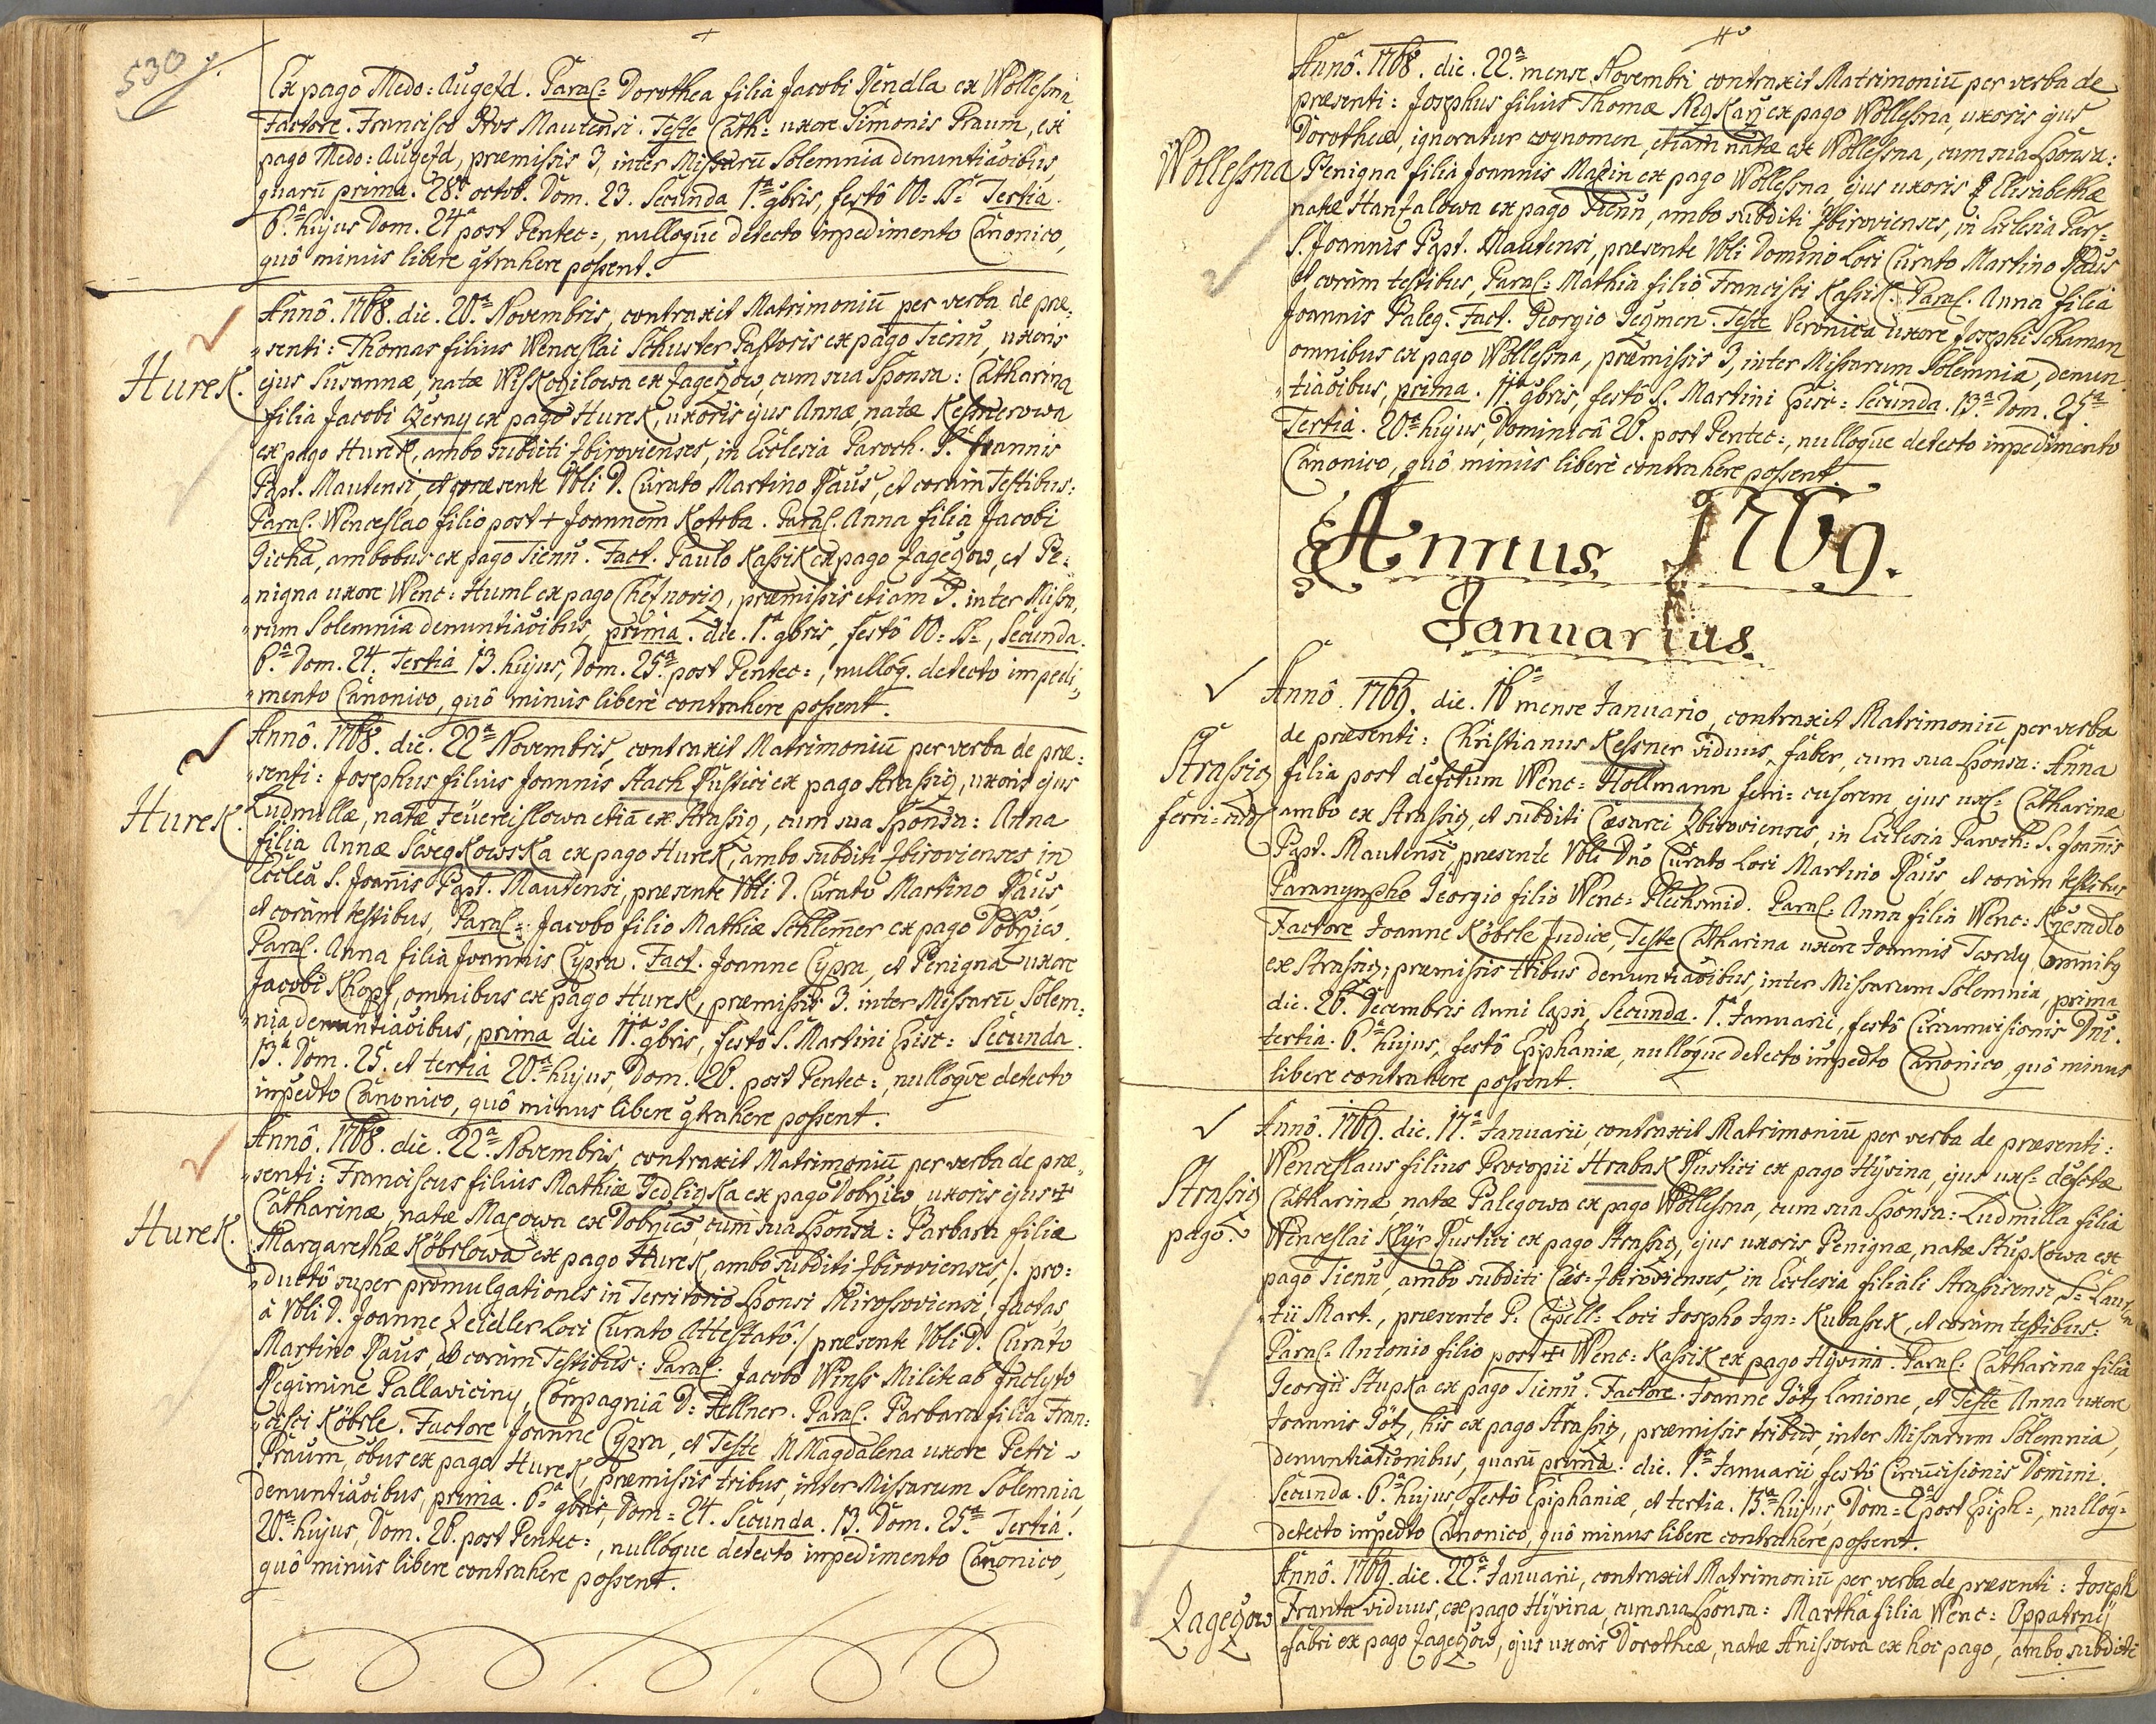 530
Ex pago Medo: Augezd. Paral= Dorothea filia Jacobi Pendla ex Wollessna
Factore. Francisco Prvs Mautensi. Teste Cath= uxore Simonis Praum, ex
pago Medo: Augezd, præmissis 3, inter Missarū Solemnia denuntiāoibus,
quarū prima. 28ª octob. Dom. 23. Secunda 1ª 9bris, festô OO= SS= Tertia.
6ª hujus Dom. 24ª post Pentec=, nulloqūe detecto impedimento Canonico,
quô minus libere gtrahere possent.
Annô. 1768. die. 20ª Novembris, contraxit Matrimoniū per verba de præ:
Hurek.
senti: Thomas filius Wenceslai Schuster Pastoris ex pago Tienū, uxoris
ejus Susannæ, natæ Wiskozilowa ex Jagezow, cum sua Sponsa: Catharina
filia Jacobi Czerny ex pago Hurek, uxoris ejus Annæ, natæ Kessnerowa
ex pago Hurek, ambo subditi Zbirovienses, in Ecclesia Paroch. S. Joannis
Bapt. Mautensi, et præsente Vbli D. Curato Martino Raus, et coram Testibus:
Paral. Wenceslao filio post + Joannem Kotrba. Paral. Anna filia Jacobi
Picha, ambobus ex pago Tienū. Fact. Paulo Kassik ex pago Jagezow, et Be:
nigna uxore Wenc: Huml ex pago Cheznoviz, præmissis etiam 3. inter Missa,
rum Solemnia denuntiāoibus, prima. die. 1ª 9bris, festô OO= SS=, Secunda.
6ª Dom. 24. Tertia 13. hujus, Dom. 25ª post Pentec=, nulloq. detecto impedi,
mento Canonico, quô minus liberè contrahere possent.
Annô. 1768. die. 22ª Novembris, contraxit Matrimoniū per verba de præ:
Hurek.
senti: Josephus filius Joannis Stach Rustici ex pago Strassiz, uxoris ejus
Ludmillæ, natæ Feuereislowa etiā ex Strassiz, cum sua Sponsa: Anna
filia Annæ Sevezkowska ex pago Hurek, ambo subditi Zbirovienses in
Ecclēa S. Joānis Bapt. Mautensi, præsente Vbli D. Curato Martino Raus,
et coram testibus, Paral=: Jacobo filio Mathiæ Schlem̄er ex pago Dobrziw.
Paral. Anna filia Joannis Cypra. Fact. Joanne Cypra, et Benigna uxore
Jacobi Khopf, omnibus ex pago Hurek, præmissis 3. inter Missarū Solem:
nia denuntiāoibus, prima die 11ª 9bris, festô S. Martini Episc: Secunda.
13ª Dom. 25. et tertia 20ª hujus, Dom. 26. post Pentec:, nulloqūe detecto
impedto Canonico, quô minus libere gtrahere possent.
Annô. 1768. die. 22ª Novembris, contraxit Matrimoniū per verba de præ,
Hurek.
senti: Franciscus filius Mathiæ Jedlizka ex pago Dobrziw uxoris ejus +
Catharinæ, natæ Mazowa ex Dobrziw, cum sua Sponsa: Barbara filia
Margarethæ Köbrlowa ex pago Hurek, ambo subditi Zbirovienses, /. pro:
ductô super promulgationes in Territorio Sponsi Mirossoviensi, factas,
à Vbli D. Joanne Zeidler Loci Curato Attestatô./ præsente Vbli D. Curato
Martino Raus, et coram Testibus: Paral. Jacobo Winss Milite ab Inclyto
Regimine Pallaviciny, Compagniâ D: Fellner. Paral. Barbara filia Fran:
cisci Köbrle. Factore Joanne Cypra, et Teste M Magdalena uxore Petri
Praum, ōbus ex pago Hurek, præmissis tribus, inter Missarum Solemnia,
denuntiāoibus, prima. 6ª 9bris, Dom= 24. Secunda. 13. Dom. 25ª Tertia.
20ª hujus, Dom. 26. post Pentec=, nulloque detecto impedimento Canonico,
quô minus libere contrahere possent.
Annô. 1768. die. 22ª mense Novembri contraxit Matrimoniū per verba de
præsenti: Josephus filius Thomæ Rezkarz ex pago Wollessna, uxoris ejus
Dorotheæ, ignoratur cognomen, etiam natæ ex Wollessna, cum sua Sponsa:
Wollessna
Benigna filia Joannis Mazin ex pago Wollessna, ejus uxoris Elisabethæ
natæ Hanzalowa ex pago Tienū, ambo subditi Zbirovienses, in Ecclesia Par=
S. Joannis Bapt. Mautensi, præsente Vbli Domino Loci Curato Martino Raus
et coram testibus, Paral= Mathia filio Francisci Kassik. Paral. Anna filia
Joannis Paleg. Fact. Georgio Jegmen. Teste Veronica uxore Josephi Schaman
omnibus ex pago Wollessna, præmissis 3, inter Missarum Solemnia, denun
tiāoibus, prima. 11ª 9bris, festô S. Martini Episc: Secunda. 13ª Dom. 25ª
Tertia. 20ª hujus, Dominicâ 26. post Pentec:, nulloqūe detecto impedimento
Canonico, quô minus liberè contrahere possent.
Annus. 1769.
Januarius.
Annô. 1769. die. 16ª mense Januario, contraxit Matrimoniū per verba
de præsenti: Christianus Kessner viduus, faber, cum sua Sponsa: Anna
Strassiz
filia post defctum Wenc= Hollmann ferri=cusorem, ejus uxs= Catharinæ
ferri=cud
ambo ex Strassiz, et subditi Cæsarei Zbirovienses, in Ecclesia Paroch= S. Joan̄is
Bapt. Mautensi, præsente Vbli Dno Curato Loci Martino Raus, et coram testibus
Paranympho Georgio filio Wenc= Plechsmid. Paral= Anna filia Wenc: Krzesadlo
Factore Joanne Köbrle Judice, Teste Catharina uxore Joannis Twrdy, omnibus
ex Strassiz, præmissis tribus denuntiāoibus, inter Missarum Solemnia, prima
die. 26. Decembris Anni lapsi, Secunda. 1ª Januarii, festô Circumcisionis Dni.
tertia. 6ª hujus, festô Epiphaniæ, nulloque detecto impedto Canonico, quô minus
libere contrahere possent.
Annô. 1769. die. 17ª Januarii, contraxit Matrimoniū per verba de præsenti:
Wenceslaus filius Procopii Hrabak Rustici ex pago Hÿvina, ejus uxs= defctæ
Strassiz
Catharinæ, natæ Palegowa ex pago Wollessna, cum sua Sponsa: Ludmilla filia
pago.
Wenceslai Klÿr Rustici ex pago Strassiz, ejus uxoris Benignæ, natæ Stupkowa ex
pago Tienū, ambo subditi Cæs= Zbirovienses, in Ecclesia filiali Strassicensi S= Lauren
tii Mart., præsente P. Capell= Loci Josepho Ign= Kubassek, et coram testibus:
Paral. Antonio filio post + Wenc= Kassik ex pago Hÿvina. Paral. Catharina filia
Georgii Stupka ex pago Tienū. Factore. Joanne Götz Lanione, et Teste Anna uxore
Joannis Götz, his ex pago Strassiz, præmissis tribus, inter Missarum Solemnia,
denuntiationibus, quarū prima. die. 1ª Januarii festô Circūcisionis Domini.
Secunda. 6ª hujus, festô Epiphaniæ, et tertia. 15ª hujus, Dom= 2ª post Epiph=, nulloq=
detecto impedto Canonico, quô minus libere contrahere possent.
Annô. 1769. die. 22ª Januarii, contraxit Matrimoniū per verba de præsenti: Joseph
Zagezow
Franta viduus, ex pago Hÿvina, cum sua Sponsa: Martha filia Wenc= Oppatrnÿ
fabri ex pago Zagezow, ejus uxoris Dorotheæ, natæ Anissowa ex hoc pago, ambo subditi